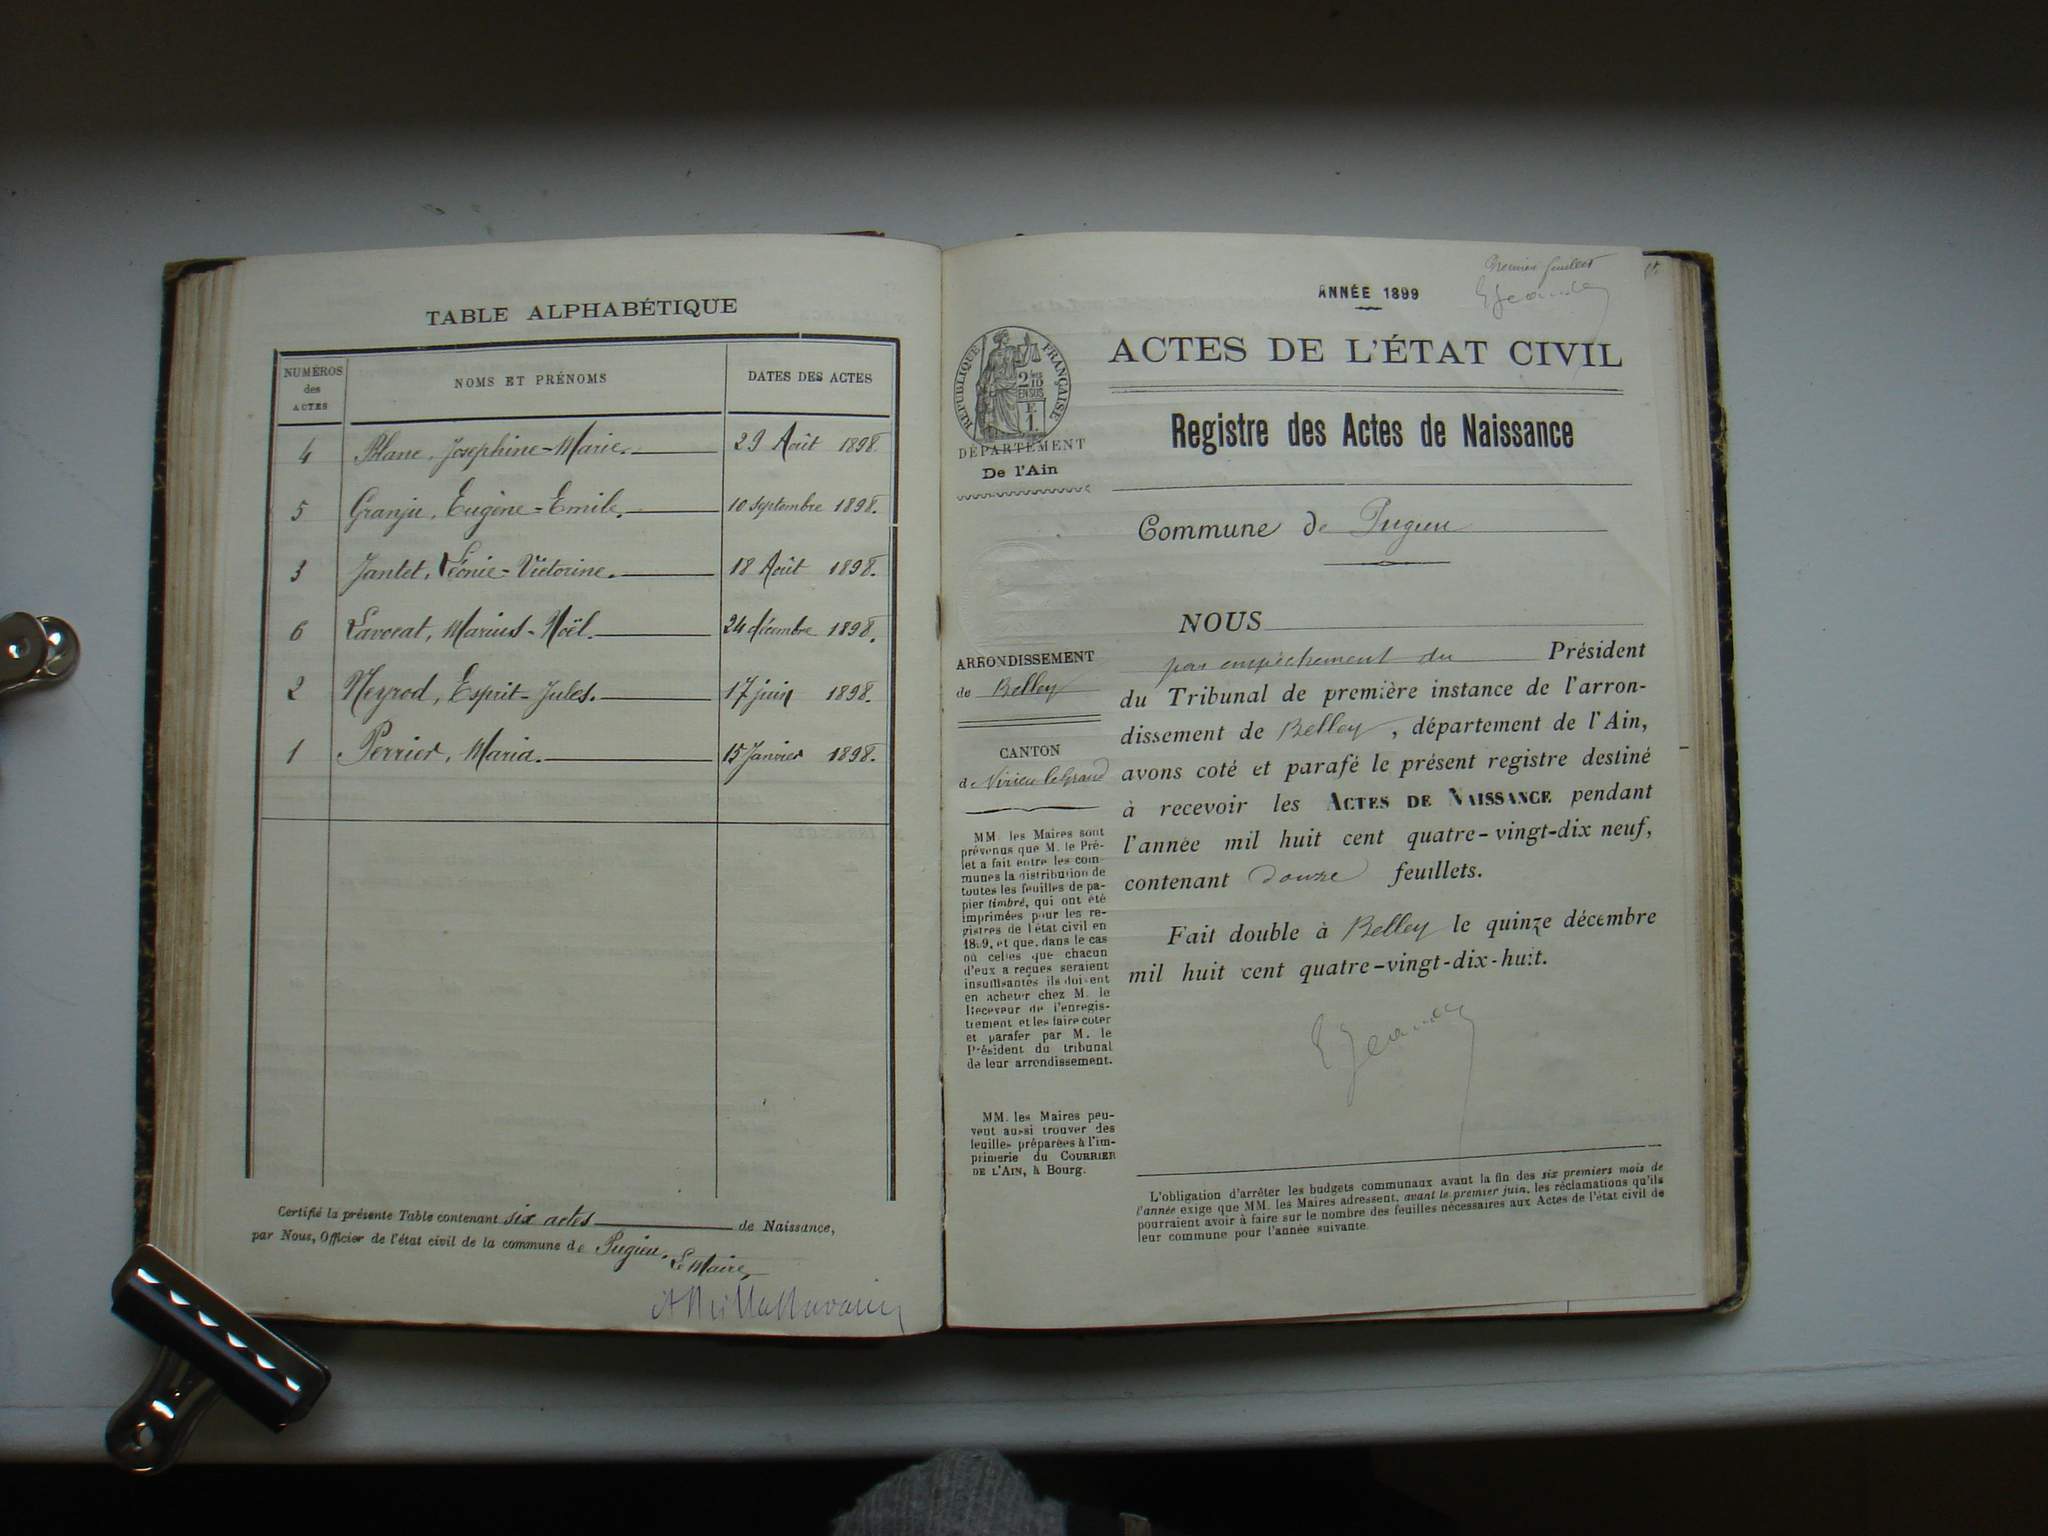 TABLE ALPHABÉTIQUE
NUMÉROS
des
ACTES
NOMS ET PRÉNOMS
DATES DES ACTES
4 Blanc, Joséphine-Marie. 29 Août 1898.
5 Granju, Eugène-Emile. 10 septembre 1898.
3 Jantet, Léonie-Victorine. 18 Août 1898.
6 Lavocat, Marius-Noël. 24 décembre 1898.
2 Neyrod, Esprit-Jules. 17 juin 1898.
1 Perrier, Maria. 15 Janvier 1898.
Certifié la présente Table contenant six actes de Naissance,
par Nous, Officier de l'état civil de la commune de Pugieu.
Le Maire,
Premier feuillet
ANNÉE 1899
ACTES DE L'ÉTAT CIVIL
RÉPUBLIQUE FRANÇAISE
2 fes
1/10
EN SUS
E
1.
DÉPARTEMENT
De l'Ain
Registre des Actes de Naissance
Commune de Pugieu
ARRONDISSEMENT
de Belley
CANTON
de Virieu le Grand
MM. les Maires sont
prévenus que M. le Pré-
fet a fait entre les com-
munes la distribution de
toutes les feuilles de pa-
pier timbré, qui ont été
imprimées pour les re-
gistres de l'état civil en
1899, et que, dans le cas
où celles que chacun
d'eux a reçues seraient
insuffisantes ils doivent
en acheter chez M. le
Receveur de l'enregis-
trement et les faire coter
et parafer par M. le
Président du tribunal
de leur arrondissement.
MM. les Maires peu-
vent aussi trouver des
feuilles préparées à l'im-
primerie du COURRIER
DE L'AIN, à Bourg.
NOUS
par empêchement du Président
du Tribunal de première instance de l'arron-
dissement de Belley, département de l'Ain,
avons coté et parafé le présent registre destiné
à recevoir les ACTES DE NAISSANCE pendant
l'année mil huit cent quatre-vingt-dix neuf,
contenant douze feuillets.
Fait double à Belley le quinze décembre
mil huit cent quatre-vingt-dix-huit.
L'obligation d'arrêter les budgets communaux avant la fin des six premiers mois de
l'année exige que MM. les Maires adressent, avant le premier juin, les réclamations qu'ils
pourraient avoir à faire sur le nombre des feuilles nécessaires aux Actes de l'état civil de
leur commune pour l'année suivante.